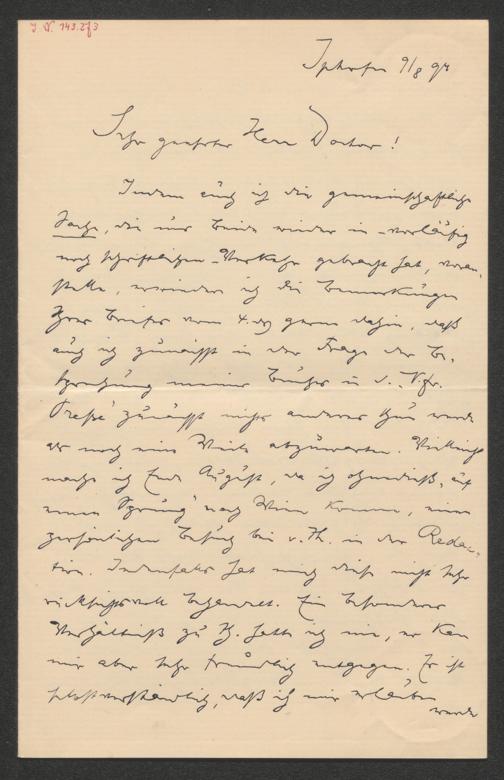 I. N. 143.273
Iphofen 9/8 97
Sehr geehrter Herr Doctor!
Indem auch ich die gemeinschaftliche
Sache, die uns Beide wieder in – vorläufig
noch schriftlichen – Verkehr gebracht hat, voran-
stelle, erwidere ich die Bemerkungen
Ihres Briefes vom 4. ds gerne dahin, daß
auch ich zunächst in der Frage der Be-
sprechung meines Buches in d. "N. fr.
Presse" zunächst nichts anderes thun werde
als noch eine Weile abzuwarten. Vielleicht
mache ich Ende August, da ich ohnedieß, auf
einen "Sprung" nach Wien komme, einen
persönlichen Besuch bei v. Th. in der Redac-
tion. Jedenfalls hat mich dieß nicht sehr
rücksichtsvoll behandelt. Ein besonderes
Verhältniß zu H. hatte ich nie, er kam
mir aber sehr freundlich entgegen. Es ist
selbstverständlich, daß ich mir erlauben
werde